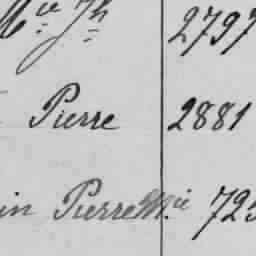 Mie Jh 2797
Pierre 2881
in Pierre Mie 725